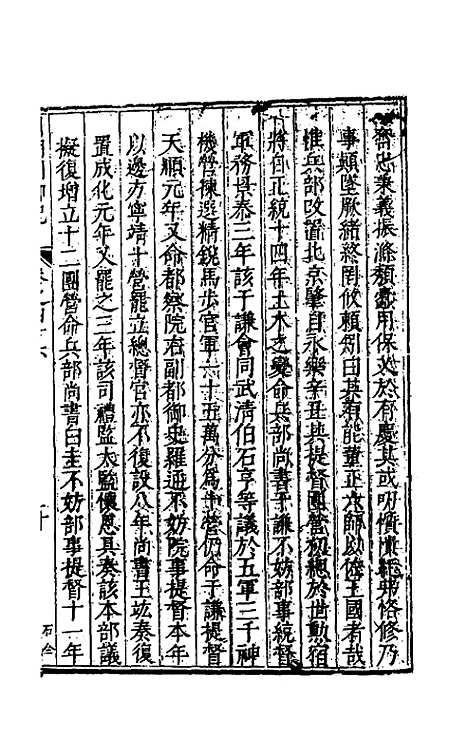 奮忠秉義振滌頹蠹用保乂於有慶其或明憤憒經邦恪修乃
事顛墜厥緒終罔攸賴則曰其有能董正六師以佐王國者哉
惟兵部改置北京肇自永樂辛丑其提督團營初總於世勳宿
將自正統十四年土木之變命兵部尚書于謙不妨部事統督
軍務景泰三年該于謙會同武清伯石亨等議於五軍三千神
機營揀選精銳馬步官軍六十五萬分為十營仍命于謙提督
天順元年又命都察院右副都御史羅通不妨院事提督本年
以邊方寧靖十營罷立總督官亦不復設八年尚書王竑奏復
置成化元年又罷之三年該司禮監太監懷恩具奏該本部議
擬復增立十二團營命兵部尚書白圭不妨部事提督十一年